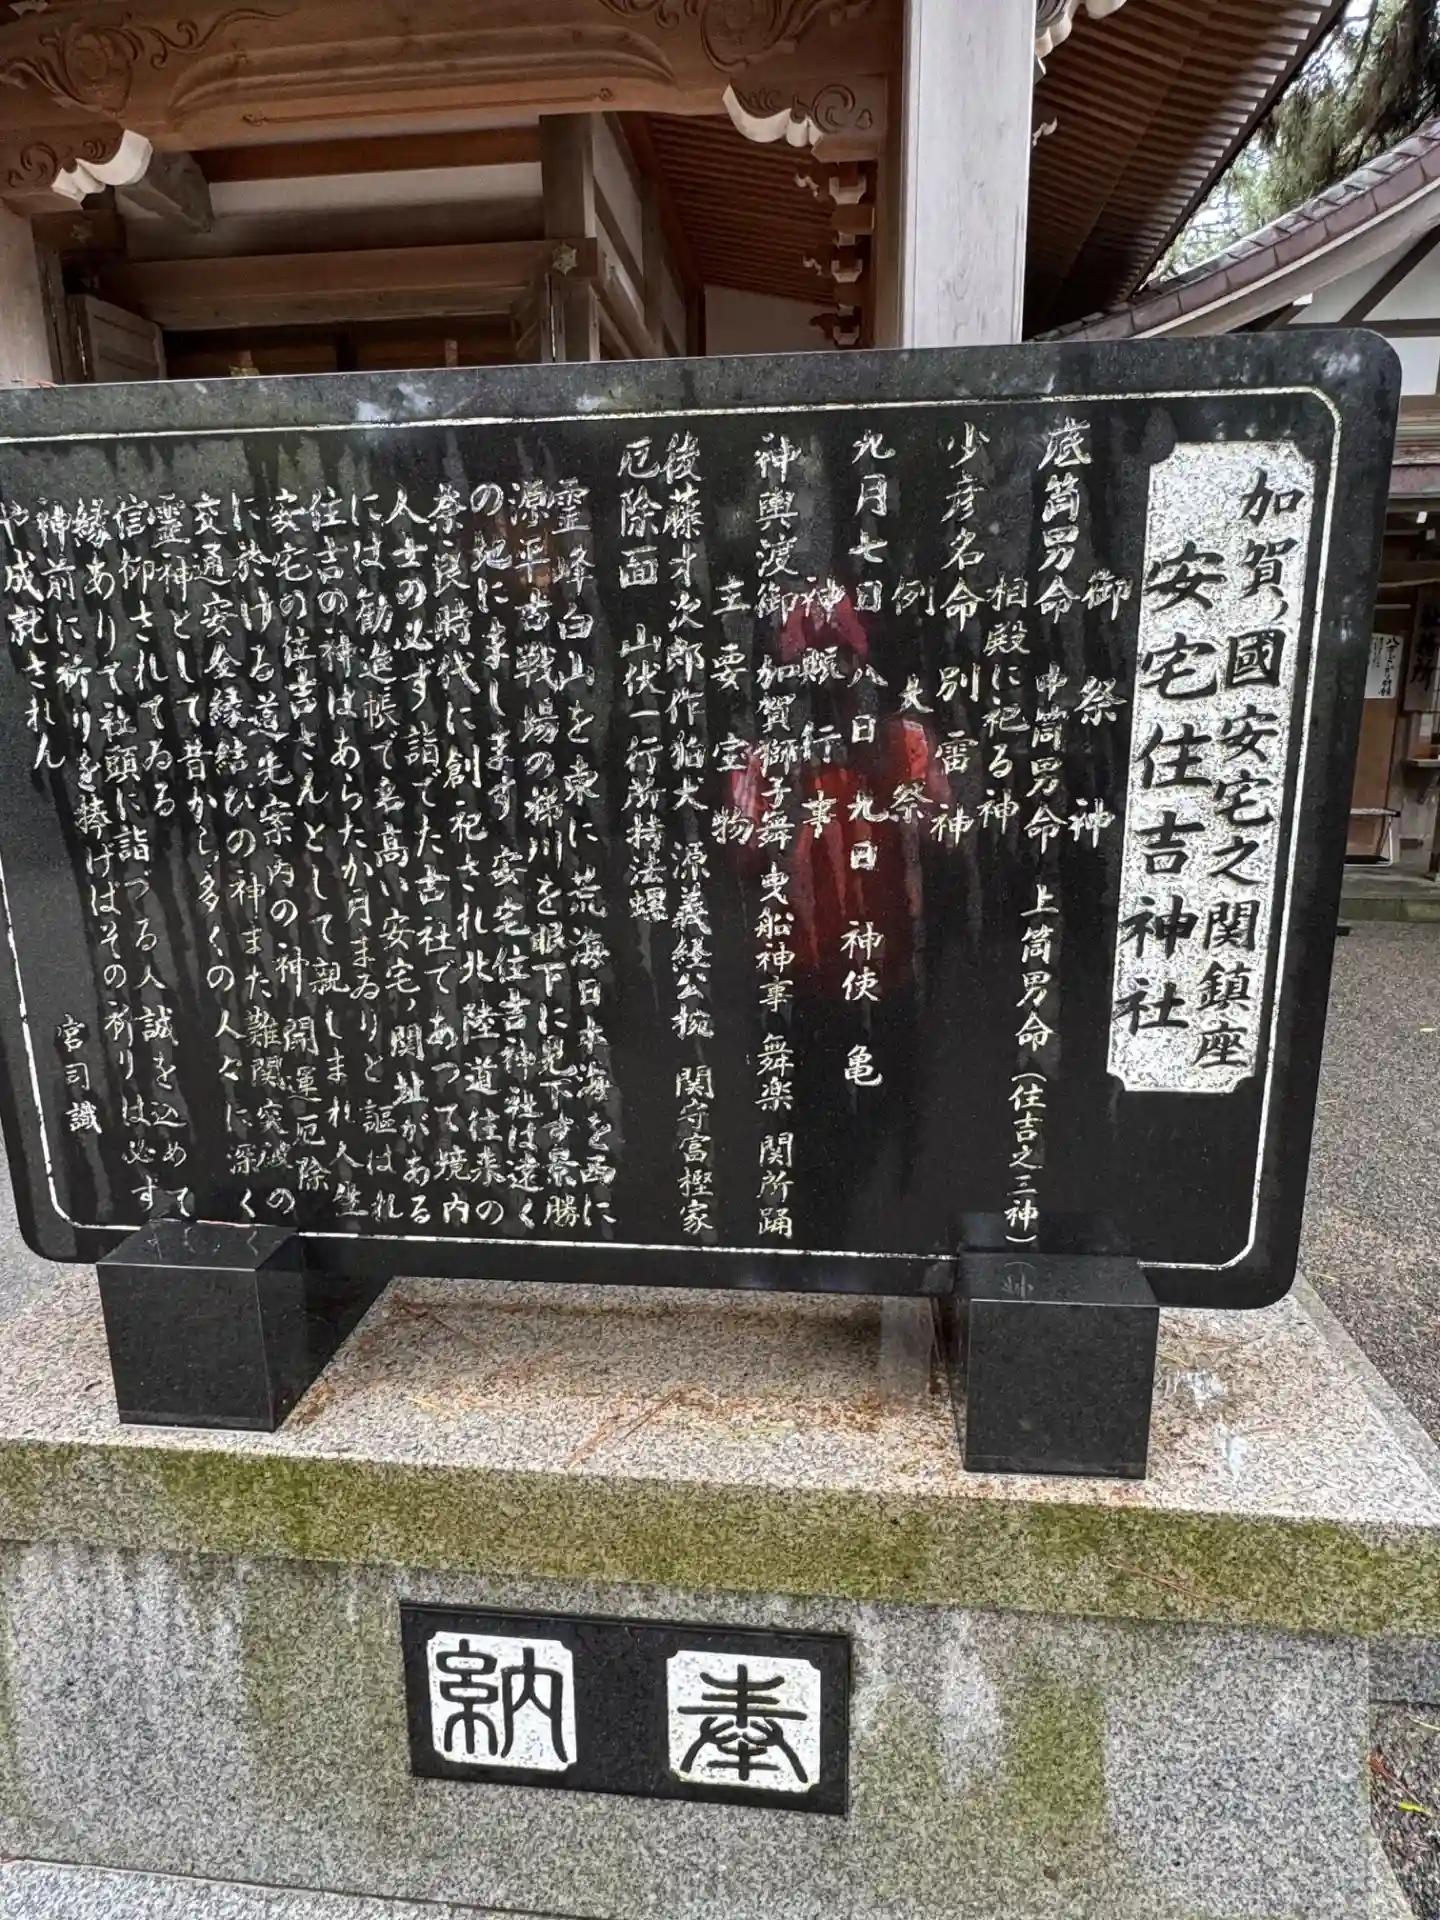 加賀國安宅之関鎮座
安宅住吉神社
御祭神
底筒男命 中筒男命 上筒男命(住吉之三神)
相殿に祀る神
少彦名命 別雷神
例大祭
九月七日八日九日 神使 亀
神賑行事
神輿渡御 加賀獅子舞 曳船神事 舞楽 関所踊
主要宝物
後藤才次郎作狛犬 源義経公椀 関守富樫家
厄除面 山伏一行所持法螺
霊峰白山を東に荒海日本海を西に
源平古戦場の梯川を眼下に見下す景勝
の地にまします安宅住吉神社は遠く
奈良時代に創祀され北陸道往来の
人士の必ず詣でた古社であつて境内
には勧進帳で名高い安宅ノ関址がある
住吉の神はあらたか月まゐりと謳はれ
安宅の住吉さんとして親しまれ人生
に於ける道先案内の神 開運厄除
交通安全縁結びの神また難関突破の
霊神として昔から多くの人々に深く
信仰されてゐる
縁ありて社頭に詣づる人誠を込めて
神前に祈りを捧げばその祈りは必ず
や成就されん
宮司識
奉納